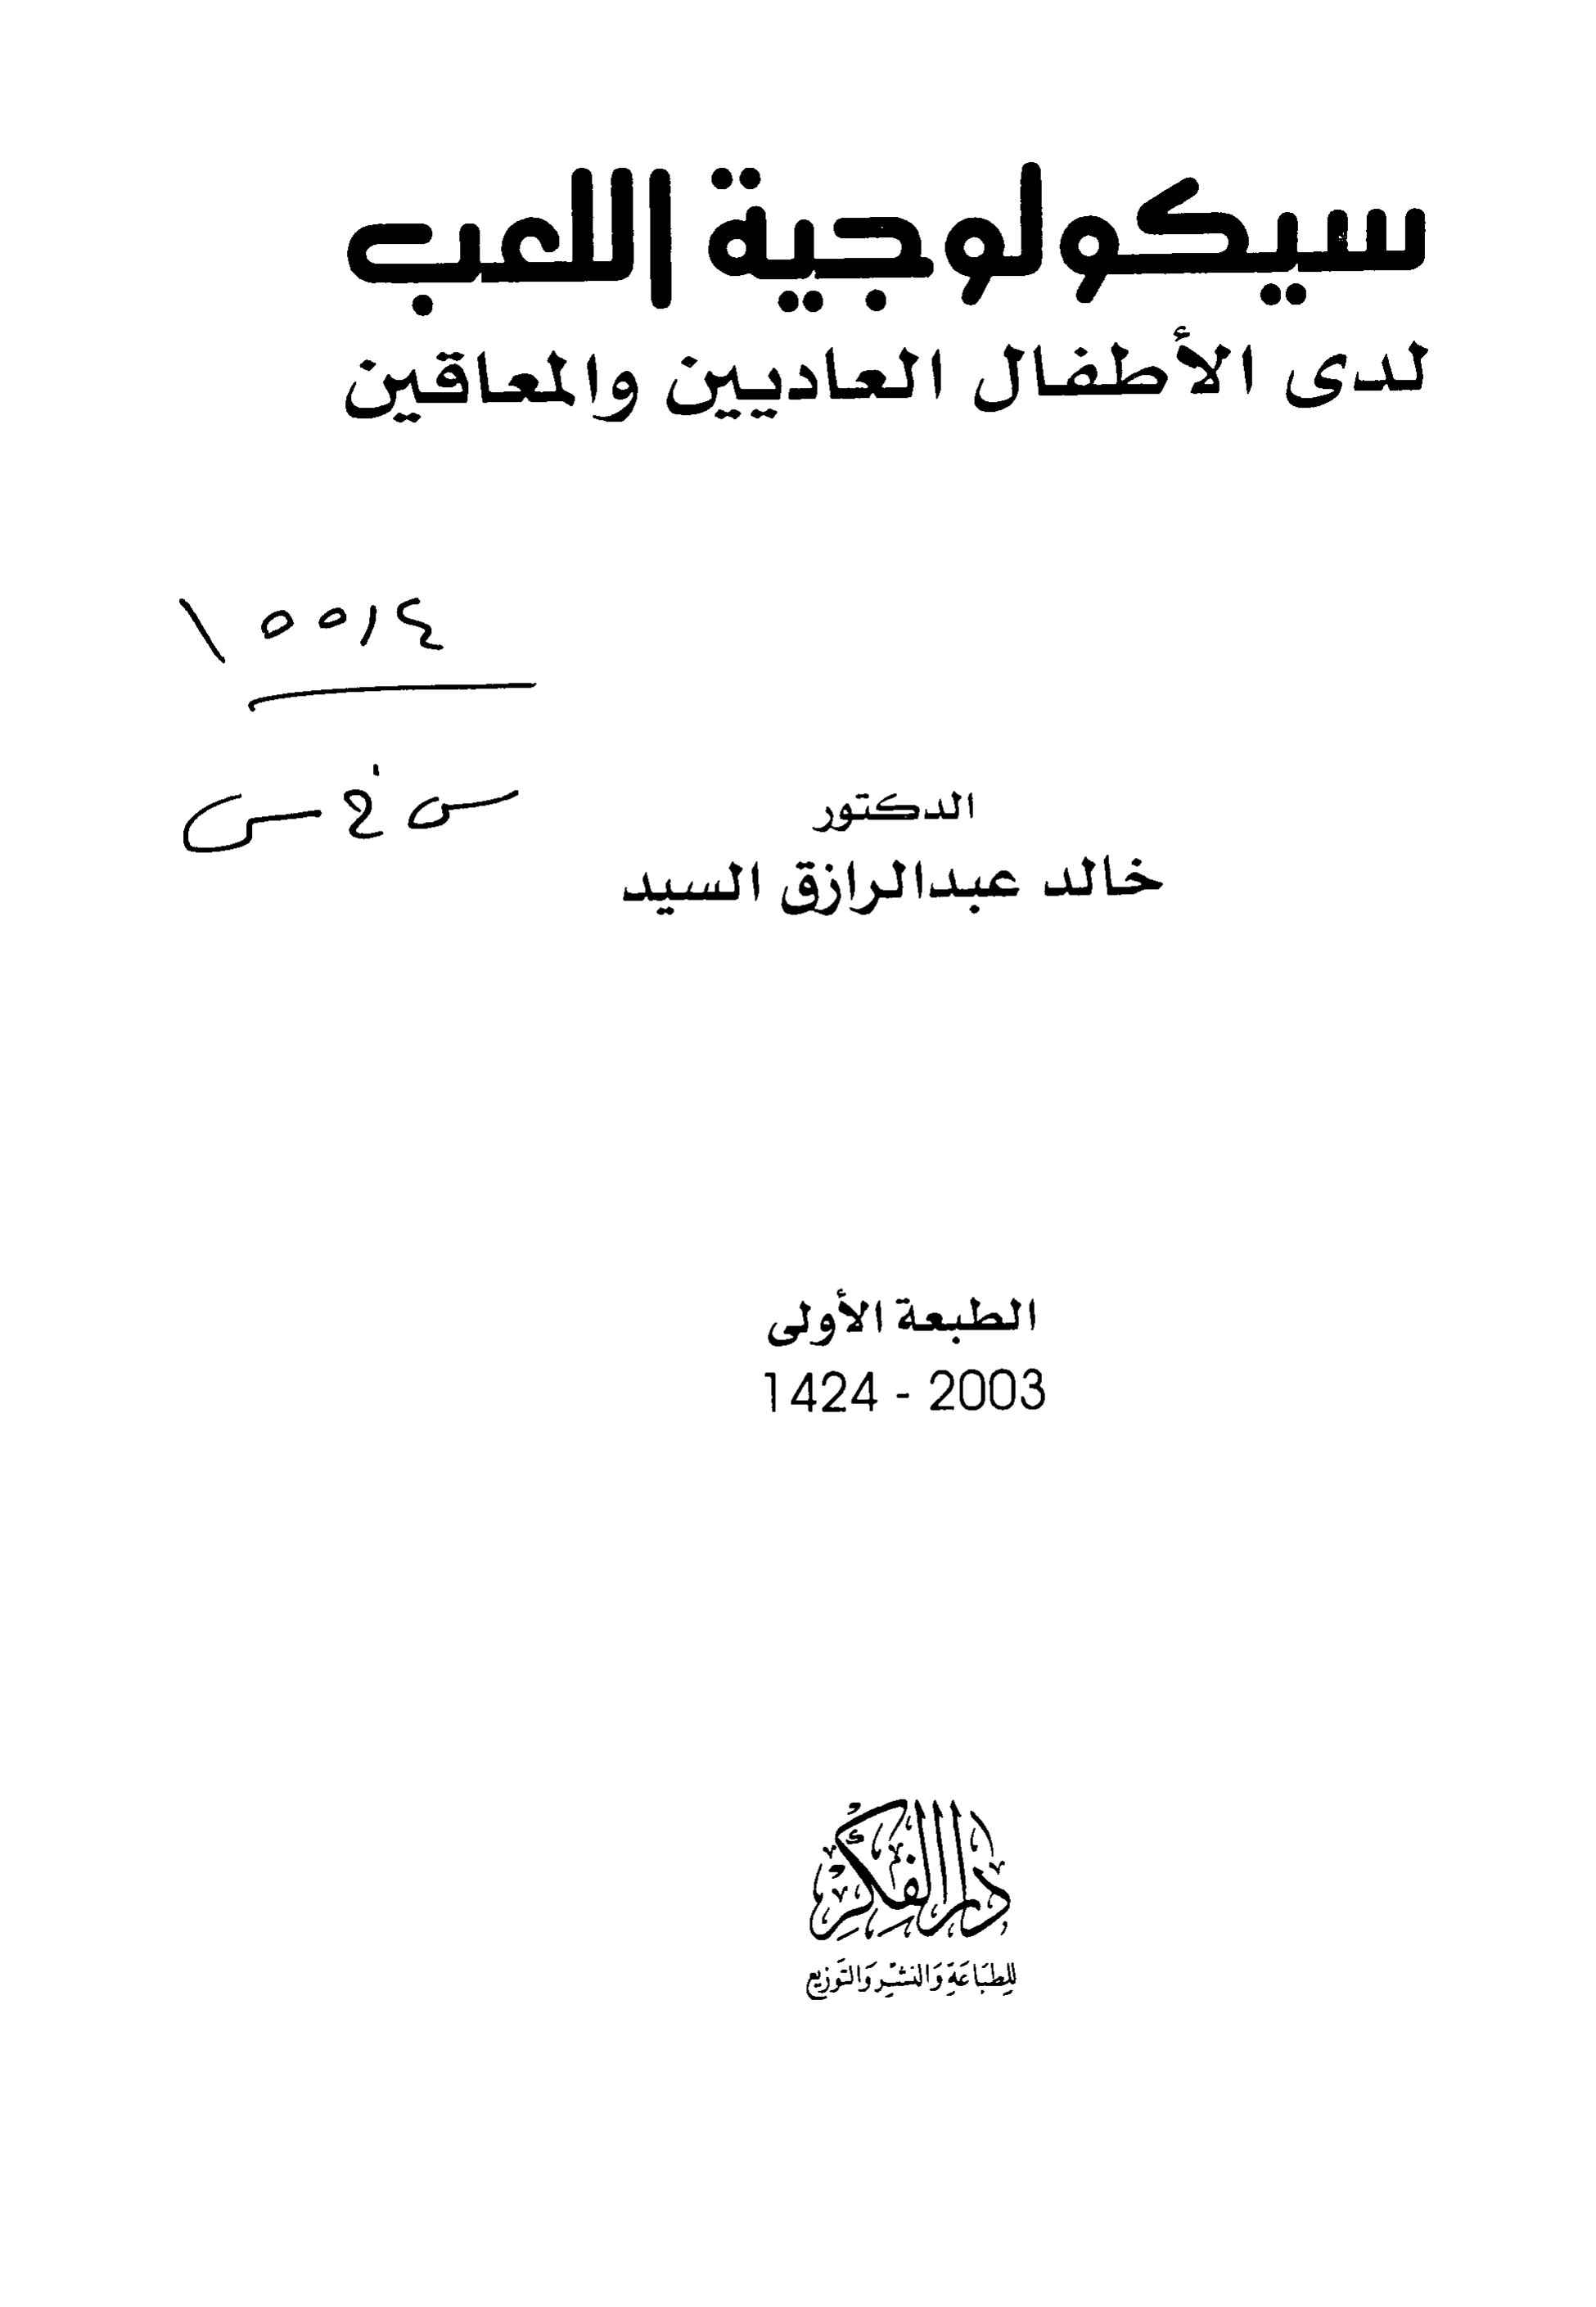 سيكولوجية اللعب
لدى الأطفال العاديين والمعاقين
١٥٥١٤
الدكتور
خالد عبدالرازق السيد
الطبعة الأولى
1424 - 2003
دار الفكر
للطباعة والنشر والتوزيع